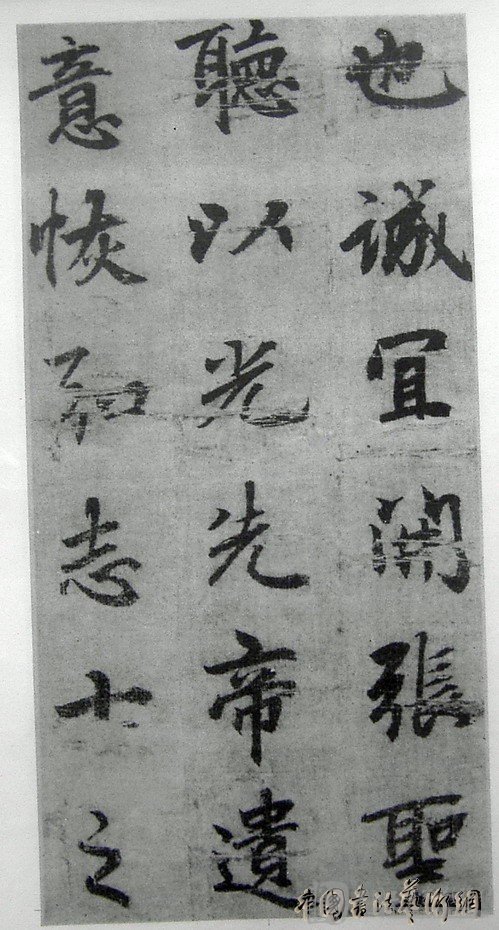 也誠宜開張聖
聽以光先帝遺
意恢弘志士之
中國書法藝術網